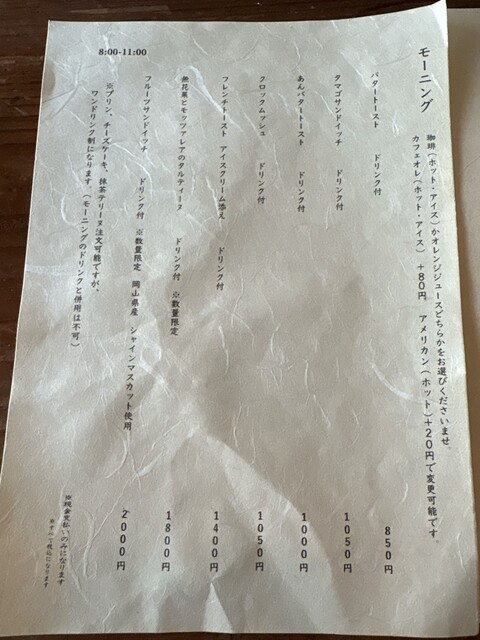 モーニング
珈琲(ホット・アイス)かオレンジジュースどちらかをお選びくださいませ。
カフェオレ(ホット・アイス) +80円 アメリカン(ホット)+20円で変更可能です。
バタートースト ドリンク付 850円
タマゴサンドイッチ ドリンク付 1050円
あんバタートースト ドリンク付 1000円
クロックムッシュ ドリンク付 1050円
フレンチトースト アイスクリーム添え ドリンク付 1400円
無花果とモッツァレアのタルティーヌ ドリンク付 ※数量限定 1800円
フルーツサンドイッチ ドリンク付 ※数量限定 岡山県産 シャインマスカット使用 2000円
※プリン、チーズケーキ、抹茶テリーヌ注文可能ですが、
ワンドリンク制になります。(モーニングのドリンクと併用は不可)
8:00-11:00
※現金支払いのみになります
※すべて税込になります